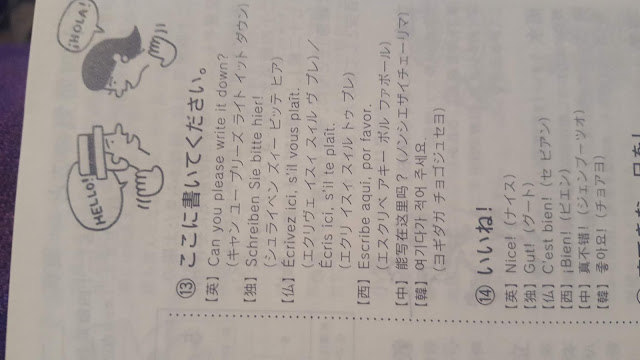 ¡HOLA!
HELLO!
⑬ ここに書いてください。
【英】Can you please write it down?
(キャン ユー プリーズ ライト イット ダウン)
【独】Schreiben Sie bitte hier!
(シュライベン ズィー ビッテ ヒア)
【仏】Écrivez ici, s'il vous plaît.
(エクリヴェ イスィ スィル ヴ プレ)/
Écris ici, s'il te plaît.
(エクリ イスィ スィル トゥ プレ)
【西】Escribe aqui, por favor.
(エスクリベ アキー ポル ファボール)
【中】能写在这里吗?(ノンシエザイチェーリマ)
【韓】여기다가 적어 주세요.
(ヨギダガ チョゴジュセヨ)
⑭ いいね!
【英】Nice!(ナイス)
【独】Gut!(グート)
【仏】C'est bien!(セ ビアン)
【西】¡Bien!(ビエン)
【中】真不错!(ジェンブーツオ)
【韓】좋아요!(チョアヨ)